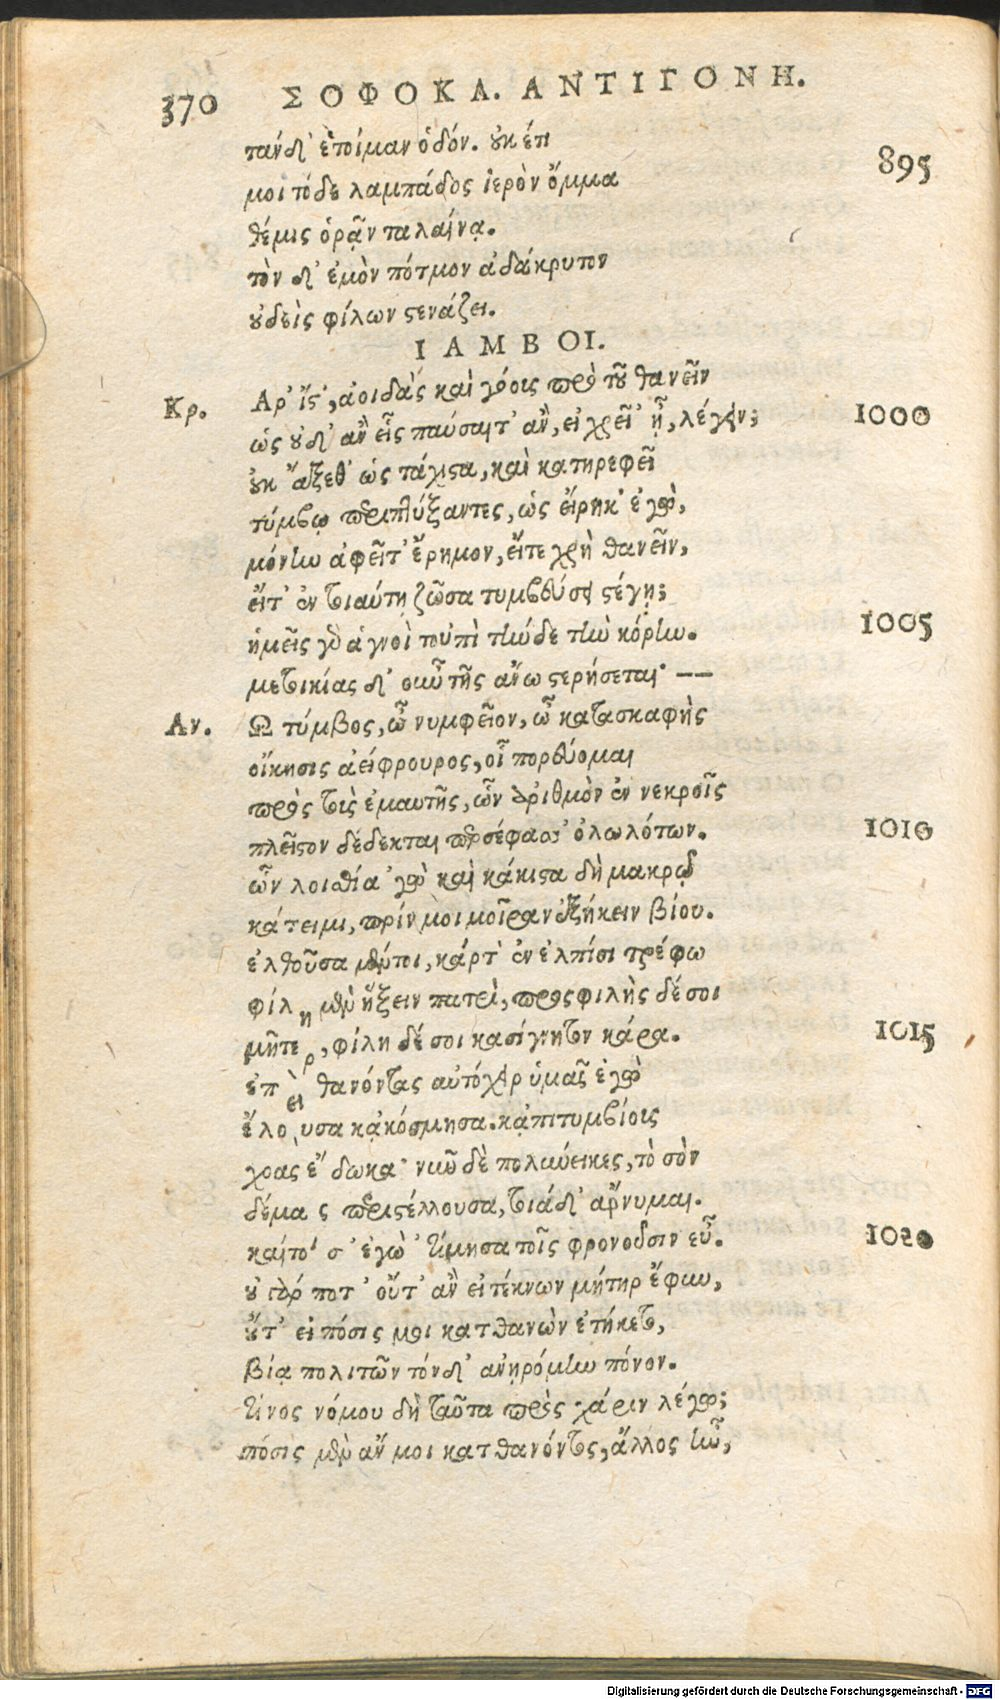 370 ΣΟΦΟΚΛ. ΑΝΤΙΓΟΝΗ.
τάνδ' ἑτοίμαν ὁδόν. οὐκ έτι
μοι τόδε λαμπάδος ἱερὸν ὄμμα 895
θέμις ὁρᾷν ταλαίνᾳ.
τὸν δ' ἐμὸν πότμον ἀδάκρυτον
οὐδεὶς φίλων στενάζει.
ΙΑΜΒΟΙ.
Κρ. Αρ' ἴστ', ἀοιδὰς καὶ γόοις πρὸ τοῦ θανεῖν
ὡς οὐδ' ἂν εἷς παύσαιτ' ἂν, εἰ χρεῖ' ᾖ, λέγειν; 1000
οὐκ ἄξεθ' ὡς τάχιστα, καὶ κατηρεφεῖ
τύμβῳ περιπτύξαντες, ὡς εἴρηκ' ἐγὼ,
μόνην ἀφεῖτ' ἔρημον, εἴτε χρὴ θανεῖν,
εἴτ' ἐν τοιαύτῃ ζῶσα τυμβεύσει στέγῃ;
ἡμεῖς γὰρ ἁγνοὶ τοὐπὶ τήνδε τὴν κόρην. 1005
μετοικίας δ' οὖν τῆς ἄνω στερήσεται· ——
Αν. Ω τύμβος, ὦ νυμφεῖον, ὦ κατασκαφὴς
οἴκησις ἀείφρουρος, οἷ πορεύομαι
πρὸς τοὺς ἐμαυτῆς, ὧν ἀριθμὸν ἐν νεκροῖς
πλεῖστον δέδεκται περσέφασσ' ὀλωλότων. 1010
ὧν λοισθία 'γὼ καὶ κάκιστα δὴ μακρῷ
κάτειμι, πρίν μοι μοῖραν ἐξήκειν βίου.
ἐλθοῦσα μέντοι, κάρτ' ἐν ἐλπίσι τρέφω
φίλη μὲν ἥξειν πατρὶ, προσφιλὴς δέ σοι
μῆτερ, φίλη δέ σοι κασίγνητον κάρα. 1015
ἐπεὶ θανόντας αὐτόχειρ ὑμᾶς ἐγὼ
ἔλουσα κᾀκόσμησα. κᾀπιτυμβίοις
χοας ἔδωκα· νῦν δὲ πολύνεικες, τὸ σὸν
δέμας περιστέλλουσα, τοιάδ' ἄρνυμαι.
καίτοι σ' ἐγὼ 'τίμησα τοῖς φρονοῦσιν εὖ. 1020
οὐ γάρ ποτ' οὔτ' ἂν εἰ τέκνων μήτηρ ἔφυν,
οὔτ' εἰ πόσις μοι κατθανὼν ἐτήκετο,
βίᾳ πολιτῶν τόνδ' ἀνῃρόμην πόνον.
τίνος νόμου δὴ ταῦτα πρὸς χάριν λέγω;
πόσις μὲν ἄν μοι κατθανόντος, ἄλλος ἦν,
Digitalisierung gefördert durch die Deutsche Forschungsgemeinschaft - DFG